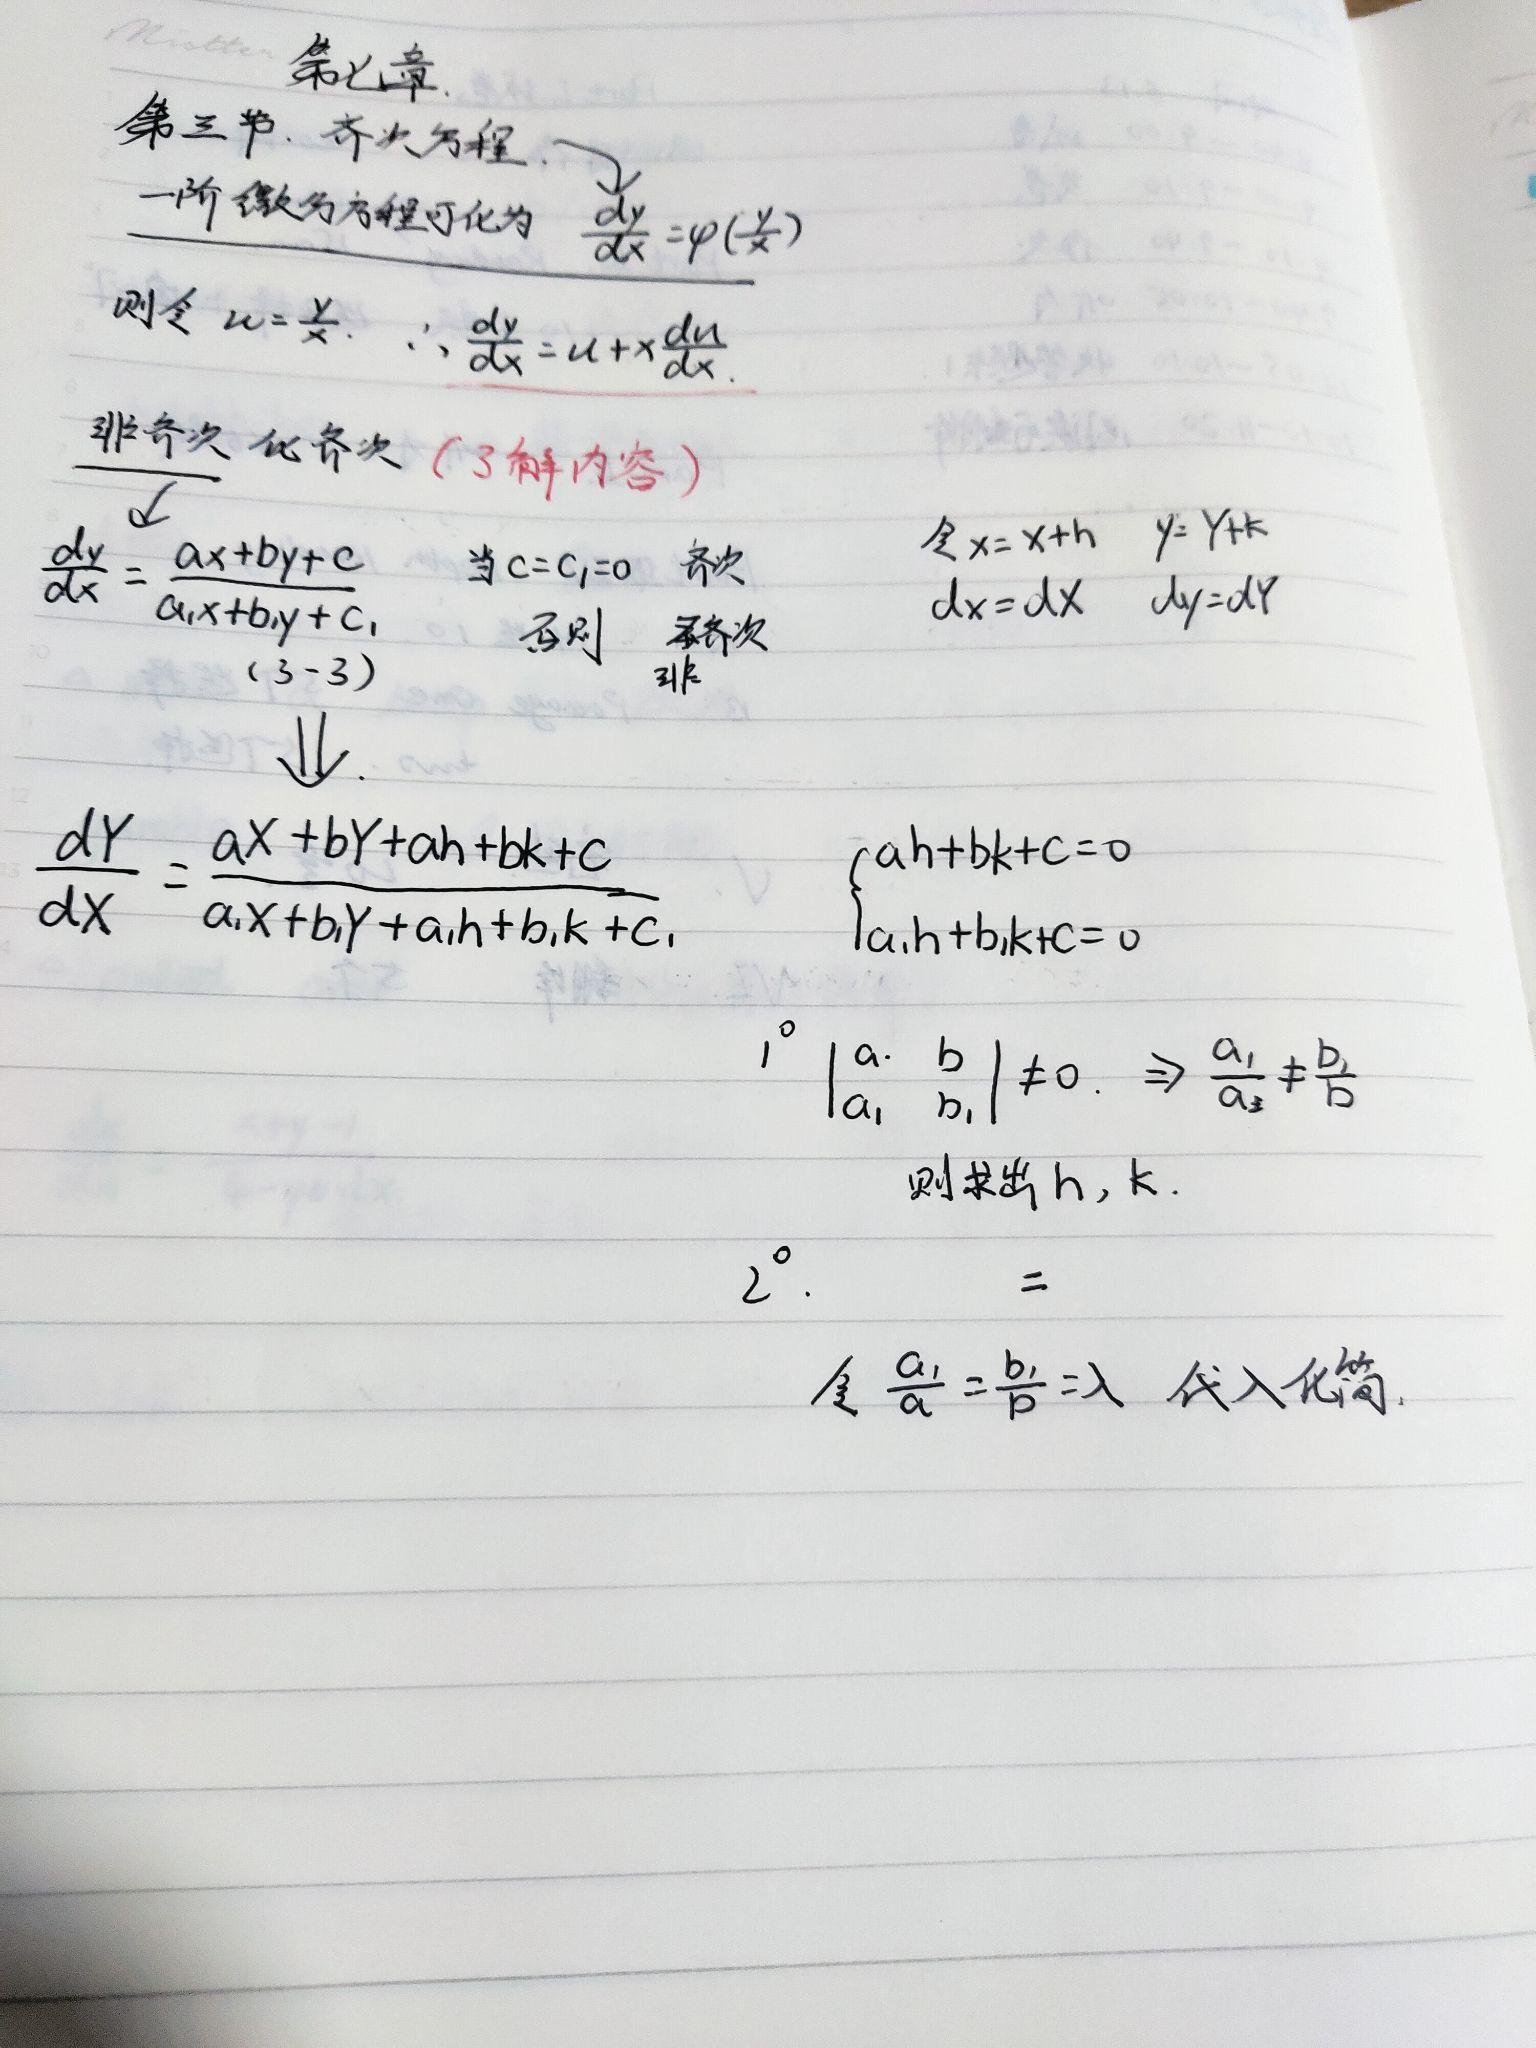 第七章.
第三节. 齐次方程.
一阶微分方程可化为 dy/dx = φ(y/x)
则令 u = y/x. ∴ dy/dx = u + x du/dx.
非齐次 化齐次 (了解内容)
dy/dx = (ax+by+c)/(a₁x+b₁y+c₁) 当 c=c₁=0 齐次 令 x=X+h y=Y+k
否则 齐次 dx=dX dy=dY
(3-3) 非
⇓.
dY/dX = (aX+bY+ah+bk+c)/(a₁X+b₁Y+a₁h+b₁k+c₁) { ah+bk+c=0
a₁h+b₁k+c=0
1° |a b; a₁ b₁| ≠ 0. ⇒ a₁/a ≠ b₁/b
则求出 h, k.
2°. =
令 a₁/a = b₁/b = λ 代入化简.